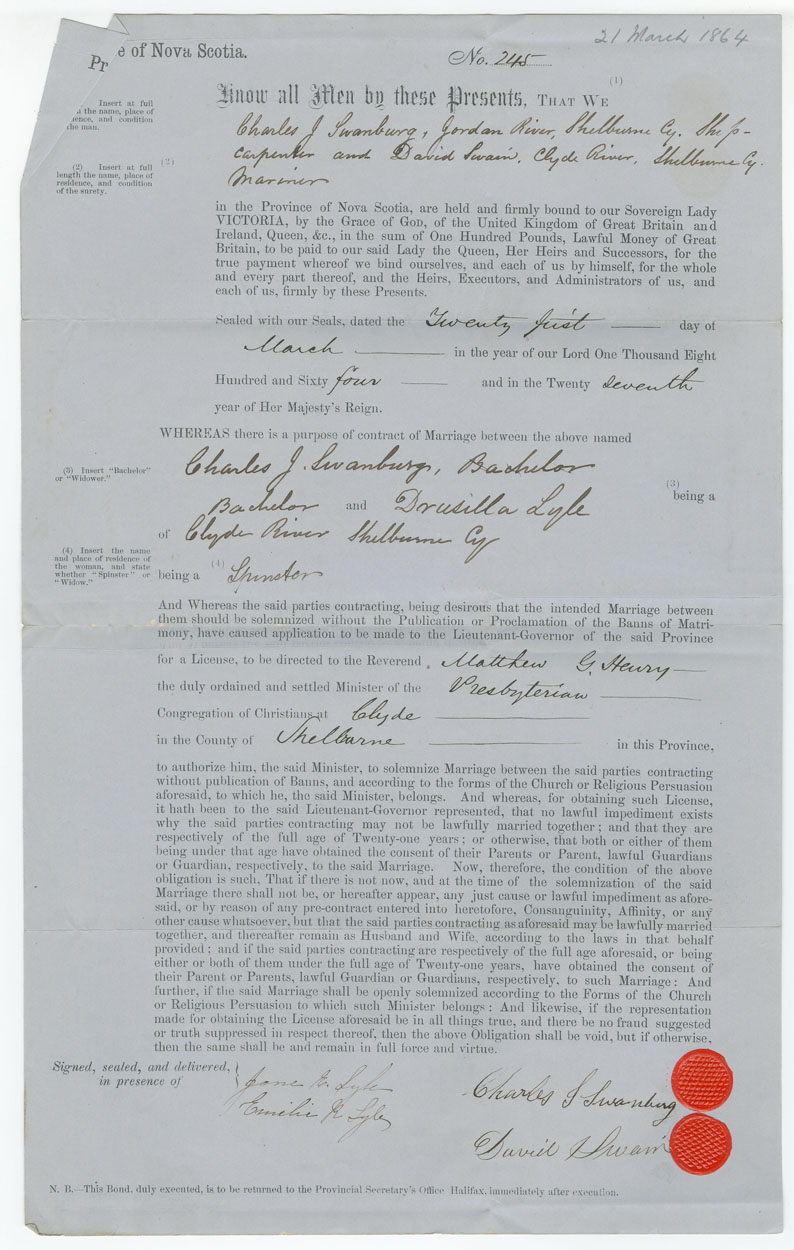 21 March 1864
Pr
e of Nova Scotia.
No. 245
Know all Men by these Presents, THAT WE (1)
Insert at full
the name, place of
ence, and condition
the man.
Charles J Swanburg, Jordan River, Shelburne Cy. Ship-
(2) Insert at full
length the name, place of
residence, and condition
of the surety.
(2)
carpenter and David Swain, Clyde River, Shelburne Cy.
Mariner
in the Province of Nova Scotia, are held and firmly bound to our Sovereign Lady
VICTORIA, by the Grace of GOD, of the United Kingdom of Great Britain and
Ireland, Queen, &c., in the sum of One Hundred Pounds, Lawful Money of Great
Britain, to be paid to our said Lady the Queen, Her Heirs and Successors, for the
true payment whereof we bind ourselves, and each of us by himself, for the whole
and every part thereof, and the Heirs, Executors, and Administrators of us, and
each of us, firmly by these Presents.
Sealed with our Seals, dated the Twenty first day of
March in the year of our Lord One Thousand Eight
Hundred and Sixty four and in the Twenty seventh
year of Her Majesty's Reign.
WHEREAS there is a purpose of contract of Marriage between the above named
(3) Insert "Bachelor"
or "Widower."
Charles J. Swanburg, Bachelor
(3)
being a
Bachelor and Drusilla Lyle
of Clyde River Shelburne Cy
(4) Insert the name
and place of residence of
the woman, and state
whether "Spinster" or
"Widow."
being a (4) Spinster
And Whereas the said parties contracting, being desirous that the intended Marriage between
them should be solemnized without the Publication or Proclamation of the Banns of Matri-
mony, have caused application to be made to the Lieutenant-Governor of the said Province
for a License, to be directed to the Reverend Matthew G. Henry
the duly ordained and settled Minister of the Presbyterian
Congregation of Christians at Clyde
in the County of Shelburne in this Province,
to authorize him, the said Minister, to solemnize Marriage between the said parties contracting
without publication of Banns, and according to the forms of the Church or Religious Persuasion
aforesaid, to which he, the said Minister, belongs. And whereas, for obtaining such License,
it hath been to the said Lieutenant-Governor represented, that no lawful impediment exists
why the said parties contracting may not be lawfully married together; and that they are
respectively of the full age of Twenty-one years; or otherwise, that both or either of them
being under that age have obtained the consent of their Parents or Parent, lawful Guardians
or Guardian, respectively, to the said Marriage. Now, therefore, the condition of the above
obligation is such, That if there is not now, and at the time of the solemnization of the said
Marriage there shall not be, or hereafter appear, any just cause or lawful impediment as afore-
said, or by reason of any pre-contract entered into heretofore, Consanguinity, Affinity, or any
other cause whatsoever, but that the said parties contracting as aforesaid may be lawfully married
together, and thereafter remain as Husband and Wife, according to the laws in that behalf
provided; and if the said parties contracting are respectively of the full age aforesaid, or being
either or both of them under the full age of Twenty-one years, have obtained the consent of
their Parent or Parents, lawful Guardian or Guardians, respectively, to such Marriage: And
further, if the said Marriage shall be openly solemnized according to the Forms of the Church
or Religious Persuasion to which such Minister belongs: And likewise, if the representation
made for obtaining the License aforesaid be in all things true, and there be no fraud suggested
or truth suppressed in respect thereof, then the above Obligation shall be void, but if otherwise,
then the same shall be and remain in full force and virtue.
Signed, sealed, and delivered,
in presence of
Jane E. Lyle
Emilie R Lyle
Charles J Swanburg
David Swain
N. B.—This Bond, duly executed, is to be returned to the Provincial Secretary's Office Halifax, immediately after execution.